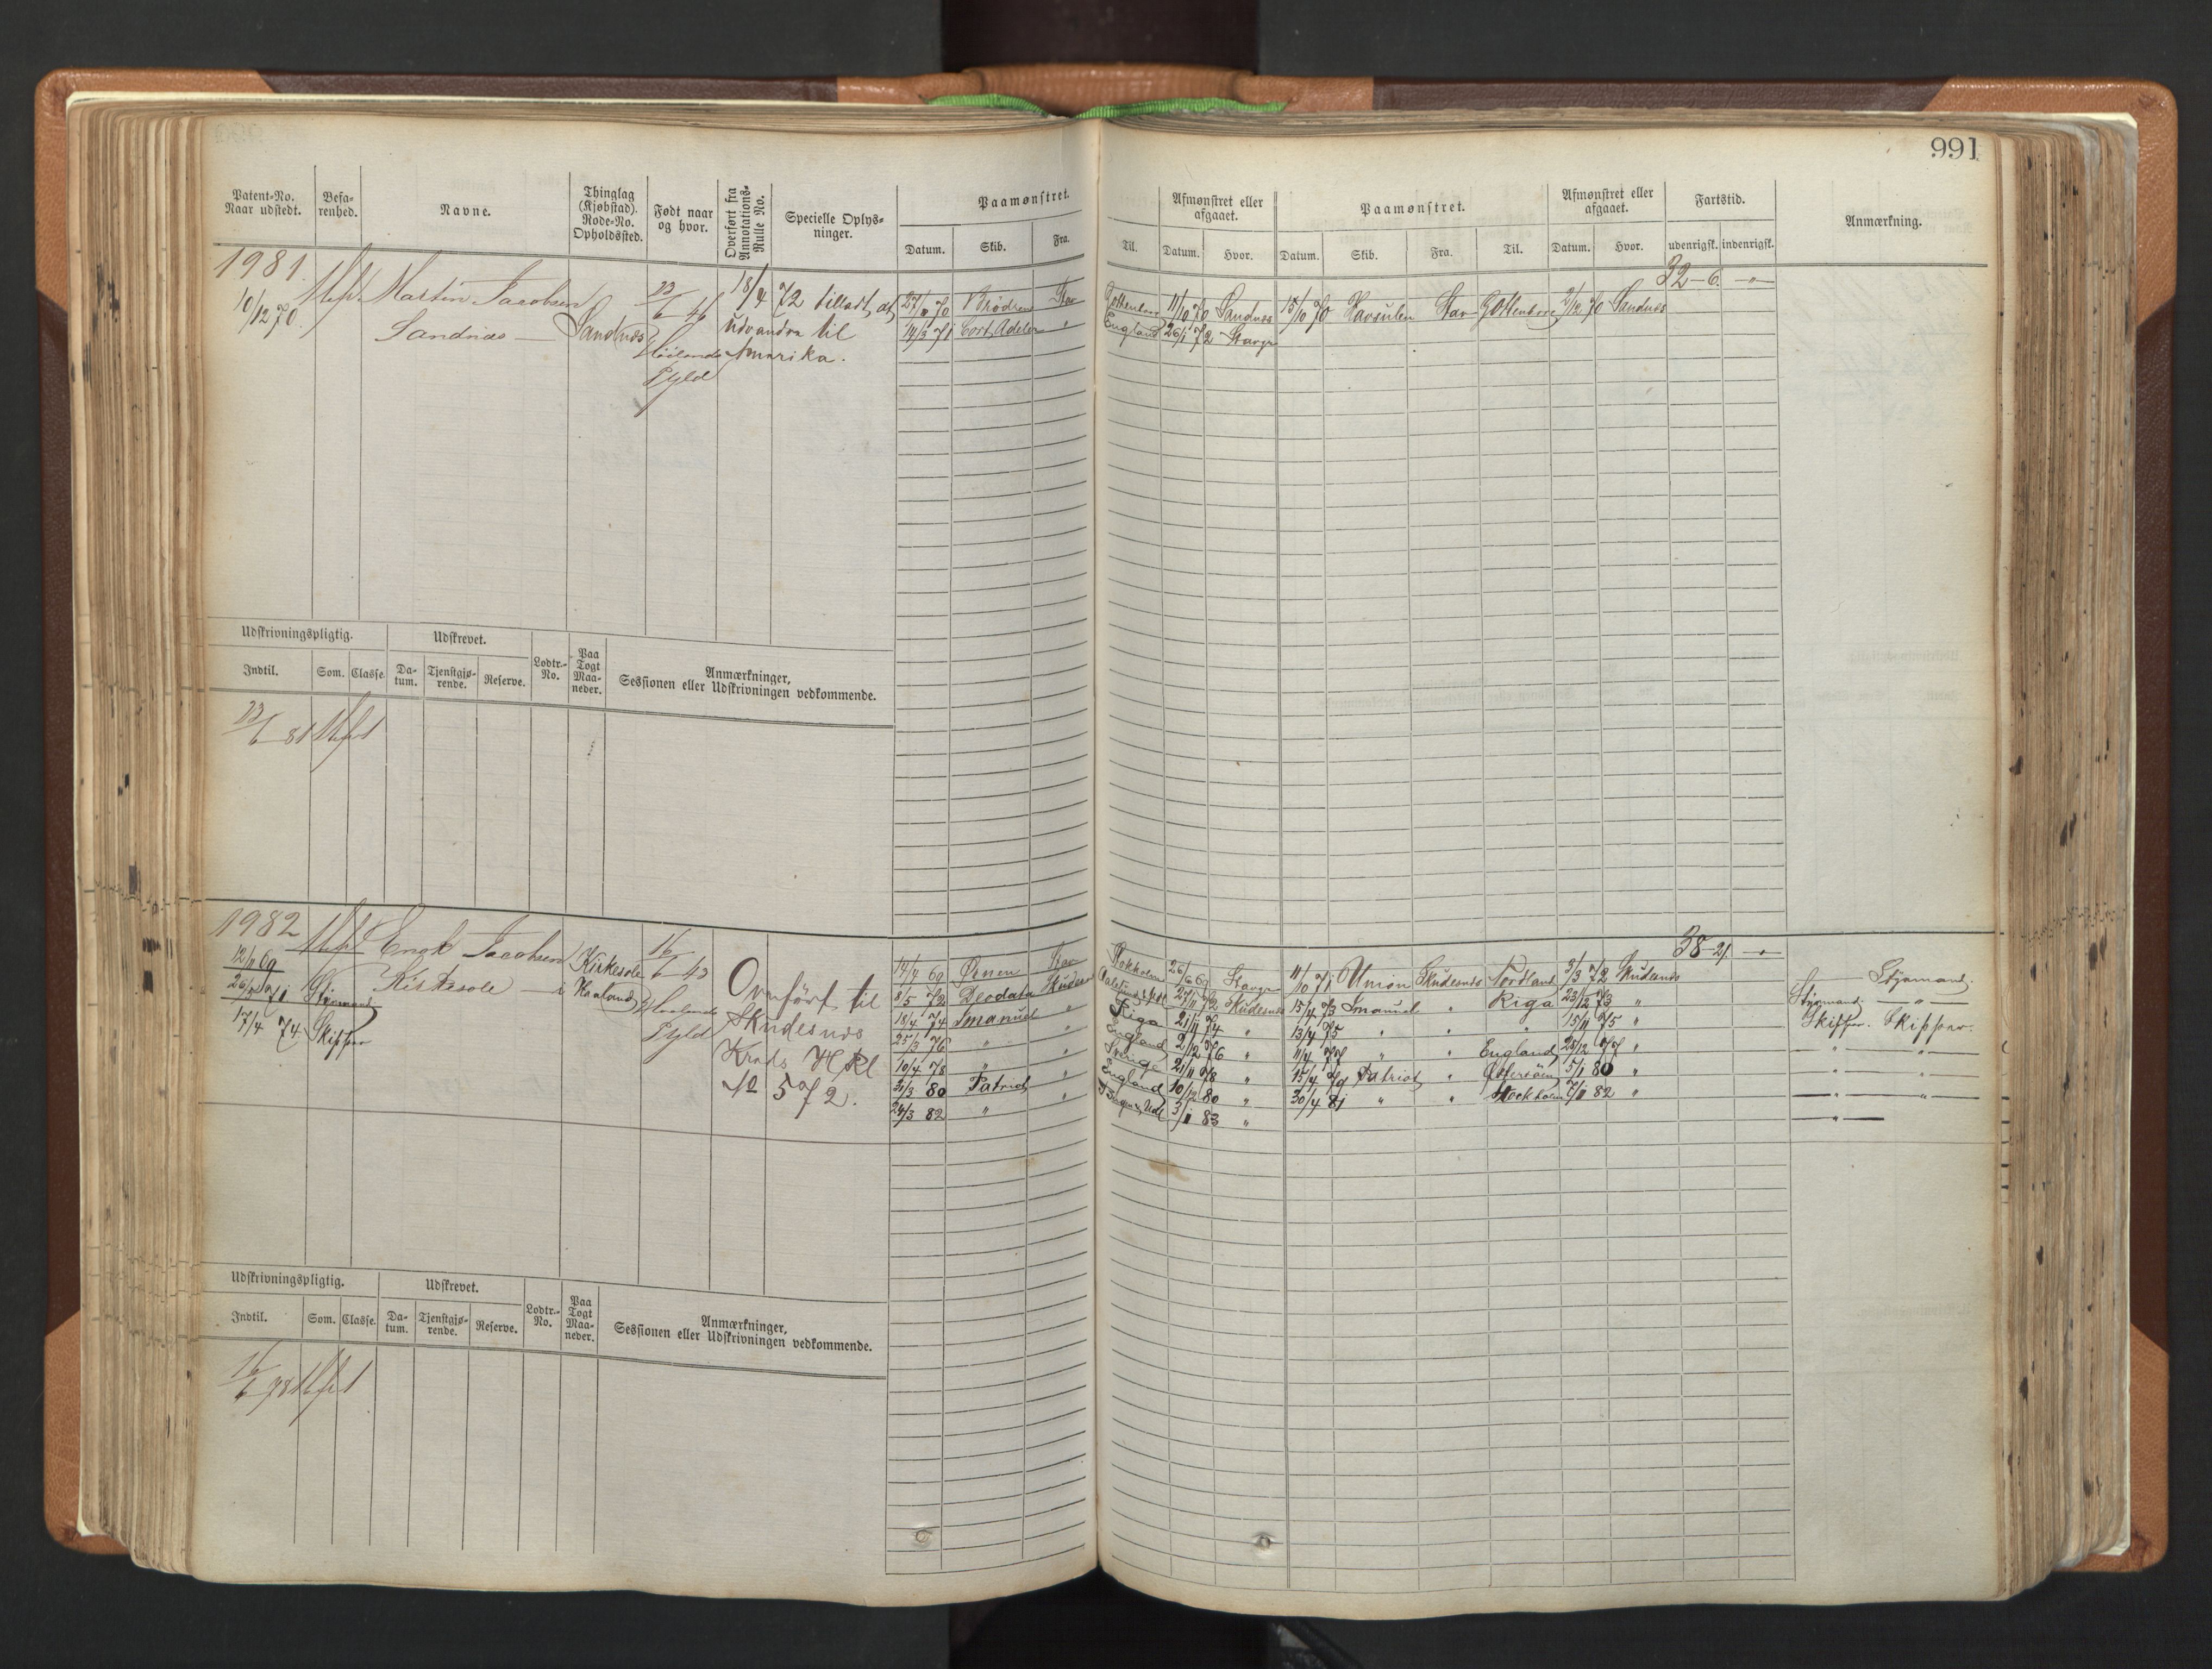 991
Patent-No. Naar udstedt.
Befarenhed.
Navne.
Thinglag (Kjøbstad). Rode-No. Opholdssted.
Født naar og hvor.
Overført fra Annotations-Rulle No.
Specielle Oplysninger.
Paamønstret.
Datum. Skib. Fra. Til.
Afmønstret eller afgaaet.
Datum. Hvor.
Paamønstret.
Datum. Skib. Fra. Til.
Afmønstret eller afgaaet.
Datum. Hvor.
Fartstid.
udenrigsk. indenrigsk.
Anmærkning.
1981.
10/12 70.
Martin Jacobsen
Sandnæs
Sandnæs
23/6 46
Høilands Pgld
18/4 72 tilladt at
udvandre til
Amerika.
32-6
27/8 70 Brødrene Stav Gottenborg 11/10 70 Sandnæs 15/10 70 Havsulen Stav Gottenborg 2/12 70 Sandnæs
14/3 71 Cort Adeler " England 26/1 72 Stavgr
Udskrivningspligtig.
Udskrevet.
Indtil. Som. Classe. Datum. Tjenstgjørende. Reserve.
Lodtr.-No.
Paa Togt Maaneder.
Anmærkninger, Sessionen eller Udskrivningen vedkommende.
23/6 81
1982
12/11 69
26/4 71 Styrmand
17/4 74. Skipper
Jacobsen
Kirkesole
i Haaland
16/6 43
Pgld
Overført til
Skudesnæs
Kreds H Rl
No 572.
38-21
14/4 69 Ørnen Stav Stokholm 26/6 69 Stavgr 11/10 71 Union Skudesnæs Nordland 3/3 72 Skudesnæs Styrmand.
8/5 72 Deodata Skudesn 27/11 72 Skudesnæs 15/4 73 Imanuel " Riga 23/12 73 " Styrmand — " —
18/4 74 Imanuel " Riga 21/11 74 " 13/4 75 " " " 15/11 75 " Skipper. Skipper.
25/3 76 " " England 2/12 76 " 11/4 77 " " England 28/12 77 " — " — — " —
10/4 78 " " Sverige 21/11 78 " 15/4 79 Patriot " Østersøen 5/1 80 "
31/3 80 Patriot " England 10/12 80 " 30/4 81 " " Stockholm 7/11 82 " — " — — " —
24/3 82 " " 3/11 83 " — " —
Udskrivningspligtig.
Udskrevet.
Indtil. Som. Classe. Datum. Tjenstgjørende. Reserve.
Lodtr.-No.
Paa Togt Maaneder.
Anmærkninger, Sessionen eller Udskrivningen vedkommende.
16/6 78